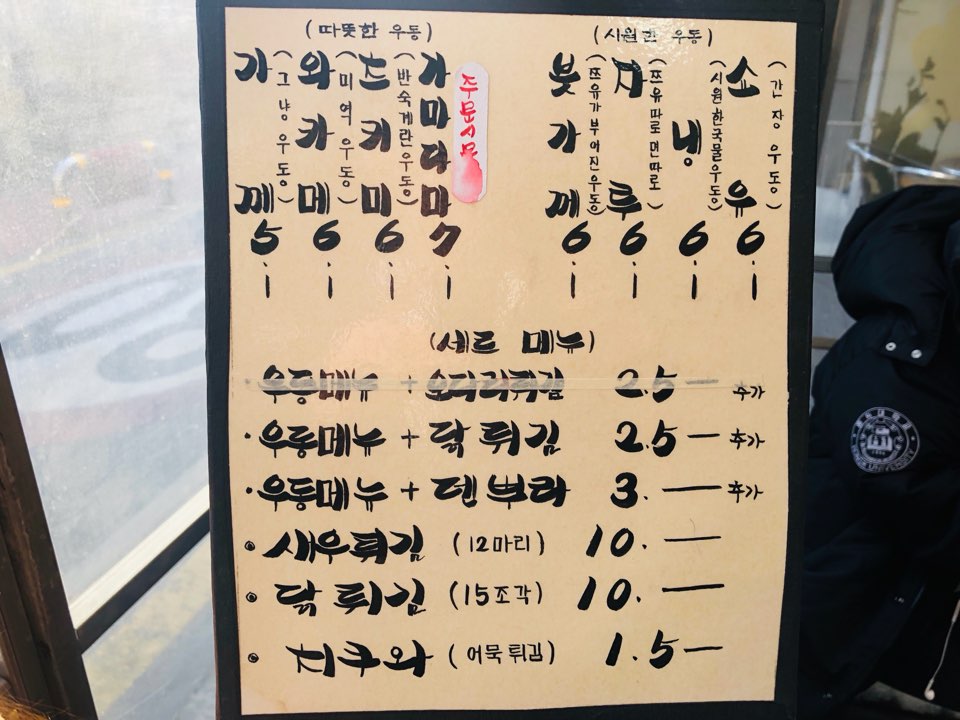 (따뜻한 우동)
가께
(그냥 우동)
5
와카메
(미역 우동)
6
츠키미
(반숙계란우동)
6
가마다마
7
주문시
(시원한 우동)
붓가께
(쯔유가부어진우동)
6
자루
(쯔유따로면따로)
6
냉
(시원한국물우동)
6
쇼유
(간장 우동)
6
(세트 메뉴)
· 우동메뉴 + 순다리튀김 2.5 — 추가
· 우동메뉴 + 닭튀김 2.5 — 추가
· 우동메뉴 + 덴뿌라 3. — 추가
새우튀김 (12마리) 10. —
닭튀김 (15조각) 10. —
치쿠와 (어묵튀김) 1.5 —